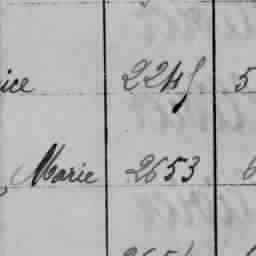 ice 2245 5
Marie 2653 6